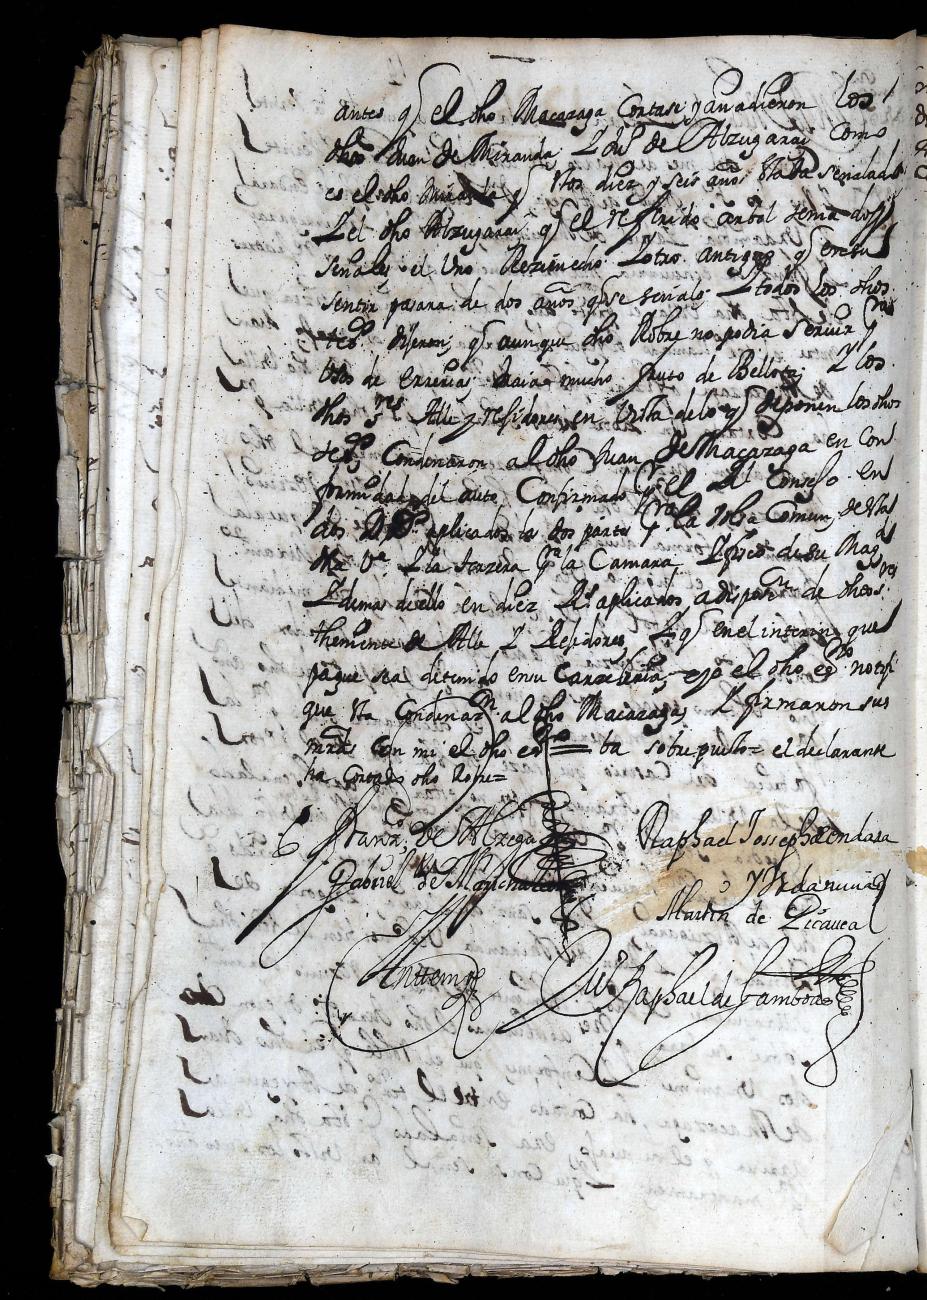 antes q el dho Macazaga Cortase y anadieron los
dhos Juan de Miranda, Y Jun de Alzugarai Como
es el dho Miranda q stos diez y seis años staba senalado
Y el dho Alzugarai q el referido arbol tenia dos
senales el Uno Rezien echo Y otro antiguo q en su
sentir pasara de dos años q se senalo Y todos los dhos
tesgos dijeron, q aunque dho Robre no podia servir pra
Usos de errerias traia mucho fruto de Bellota; Y los
dhos sres Alle y rejidores en Vista de lo q deponen los dhos
tesgos Condenaron al dho Juan de Macazaga en Con
formidad del auto Confirmado por el Rl Consejo en
dos aplicados la dos partes pra la bolsa Comun de sta
Na Va Y la terzera pra la Camara Y fisco de su Magd
Y demas de ello en diez Rs aplicados a dispon de dhos sres
theniente de Alle Y Rejidores, Y q en el interin que
pague sea detenido en su Carzeleria, e yo el dho esno notifi
que sta Condenaon al dho Macazaga, Y firmaron sus
mrds Con mi el dho esno = ba sobrepuesto = el declarante
ha Cortado dho Robre =
Franco de Alzega
Raphael Joseph de Endara
Gabriel de
y Yrdanivia
Martin de Picavea
Antte mi
Raphael de Gamboa